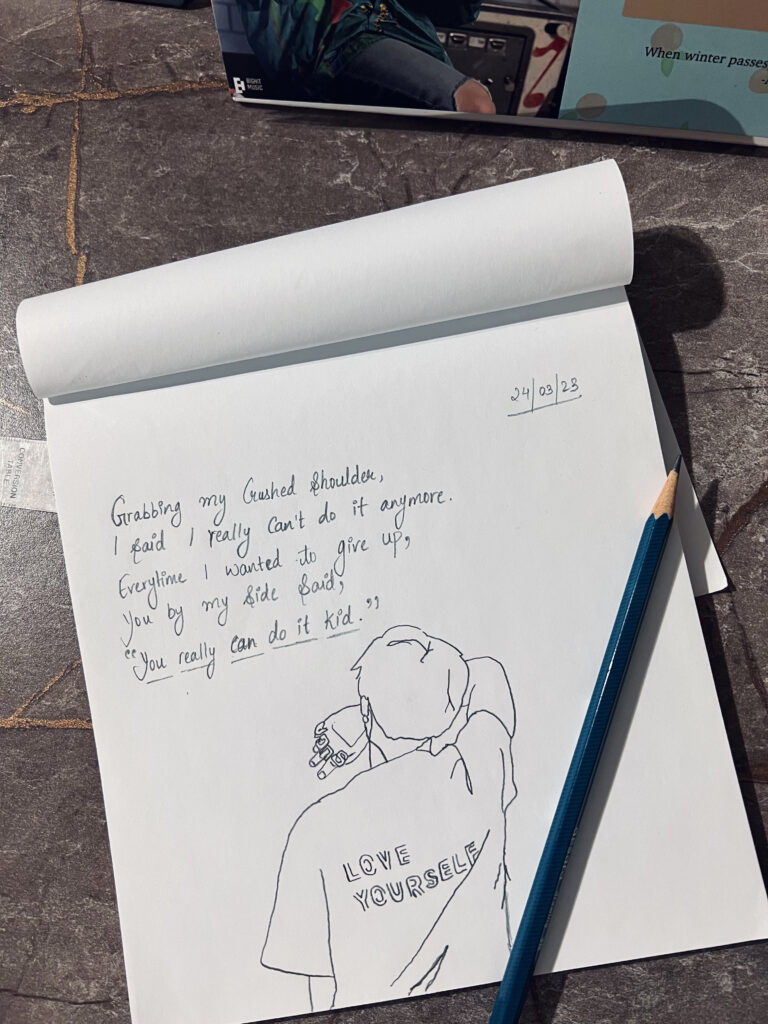 BIGHIT
MUSIC
When winter passes
24/03/23
Grabbing my Crushed Shoulder,
I Said I really Can't do it anymore.
Everytime I wanted to give up,
You by my Side Said,
“You really can do it kid.”
LOVE
YOURSELF
CONVERSION
TABLE